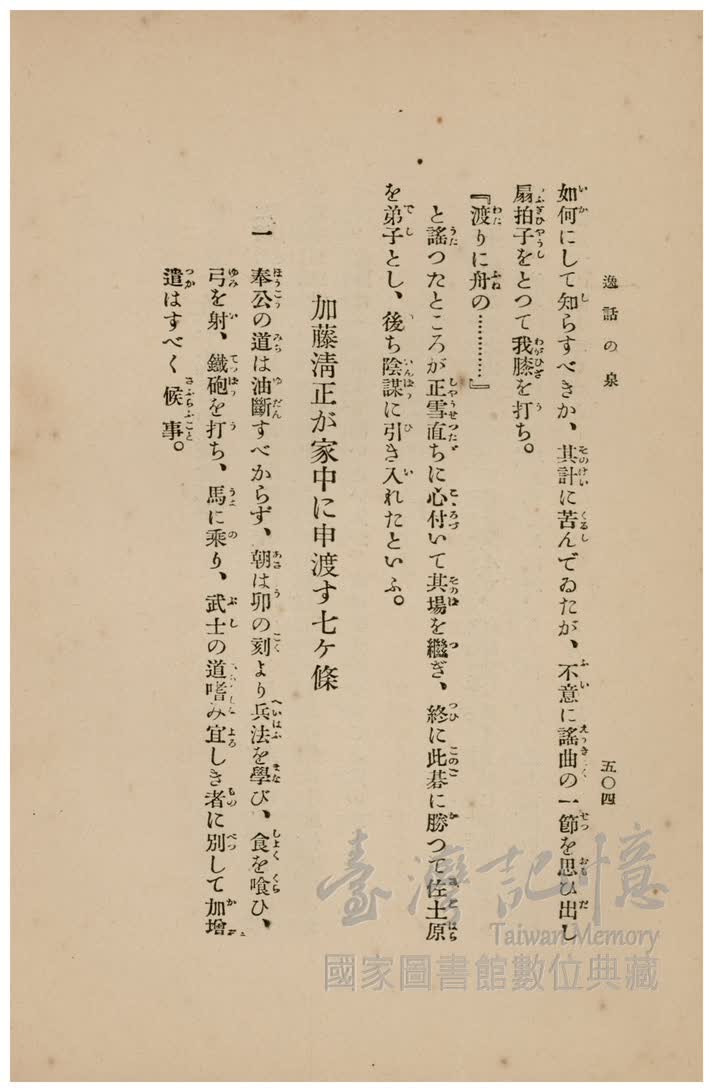 逸話の泉
五〇四
如何にして知らすべきか、其計に苦んでゐたが、不意に謠曲の一節を思ひ出し
扇拍子をとつて我膝を打ち。
『渡りに舟の…………』
と謠つたところが正雪直ちに心付いて其場を繼ぎ、終に此碁に勝つて佐土原
を弟子とし、後ち陰謀に引き入れたといふ。
加藤淸正が家中に申渡す七ケ條
一 奉公の道は油斷すべからず、朝は卯の刻より兵法を學び、食を喰ひ、
弓を射、鐵砲を打ち、馬に乘り、武士の道嗜み宜しき者に別して加增
遣はすべく候事。
臺灣記憶
Taiwan Memory
國家圖書館數位典藏